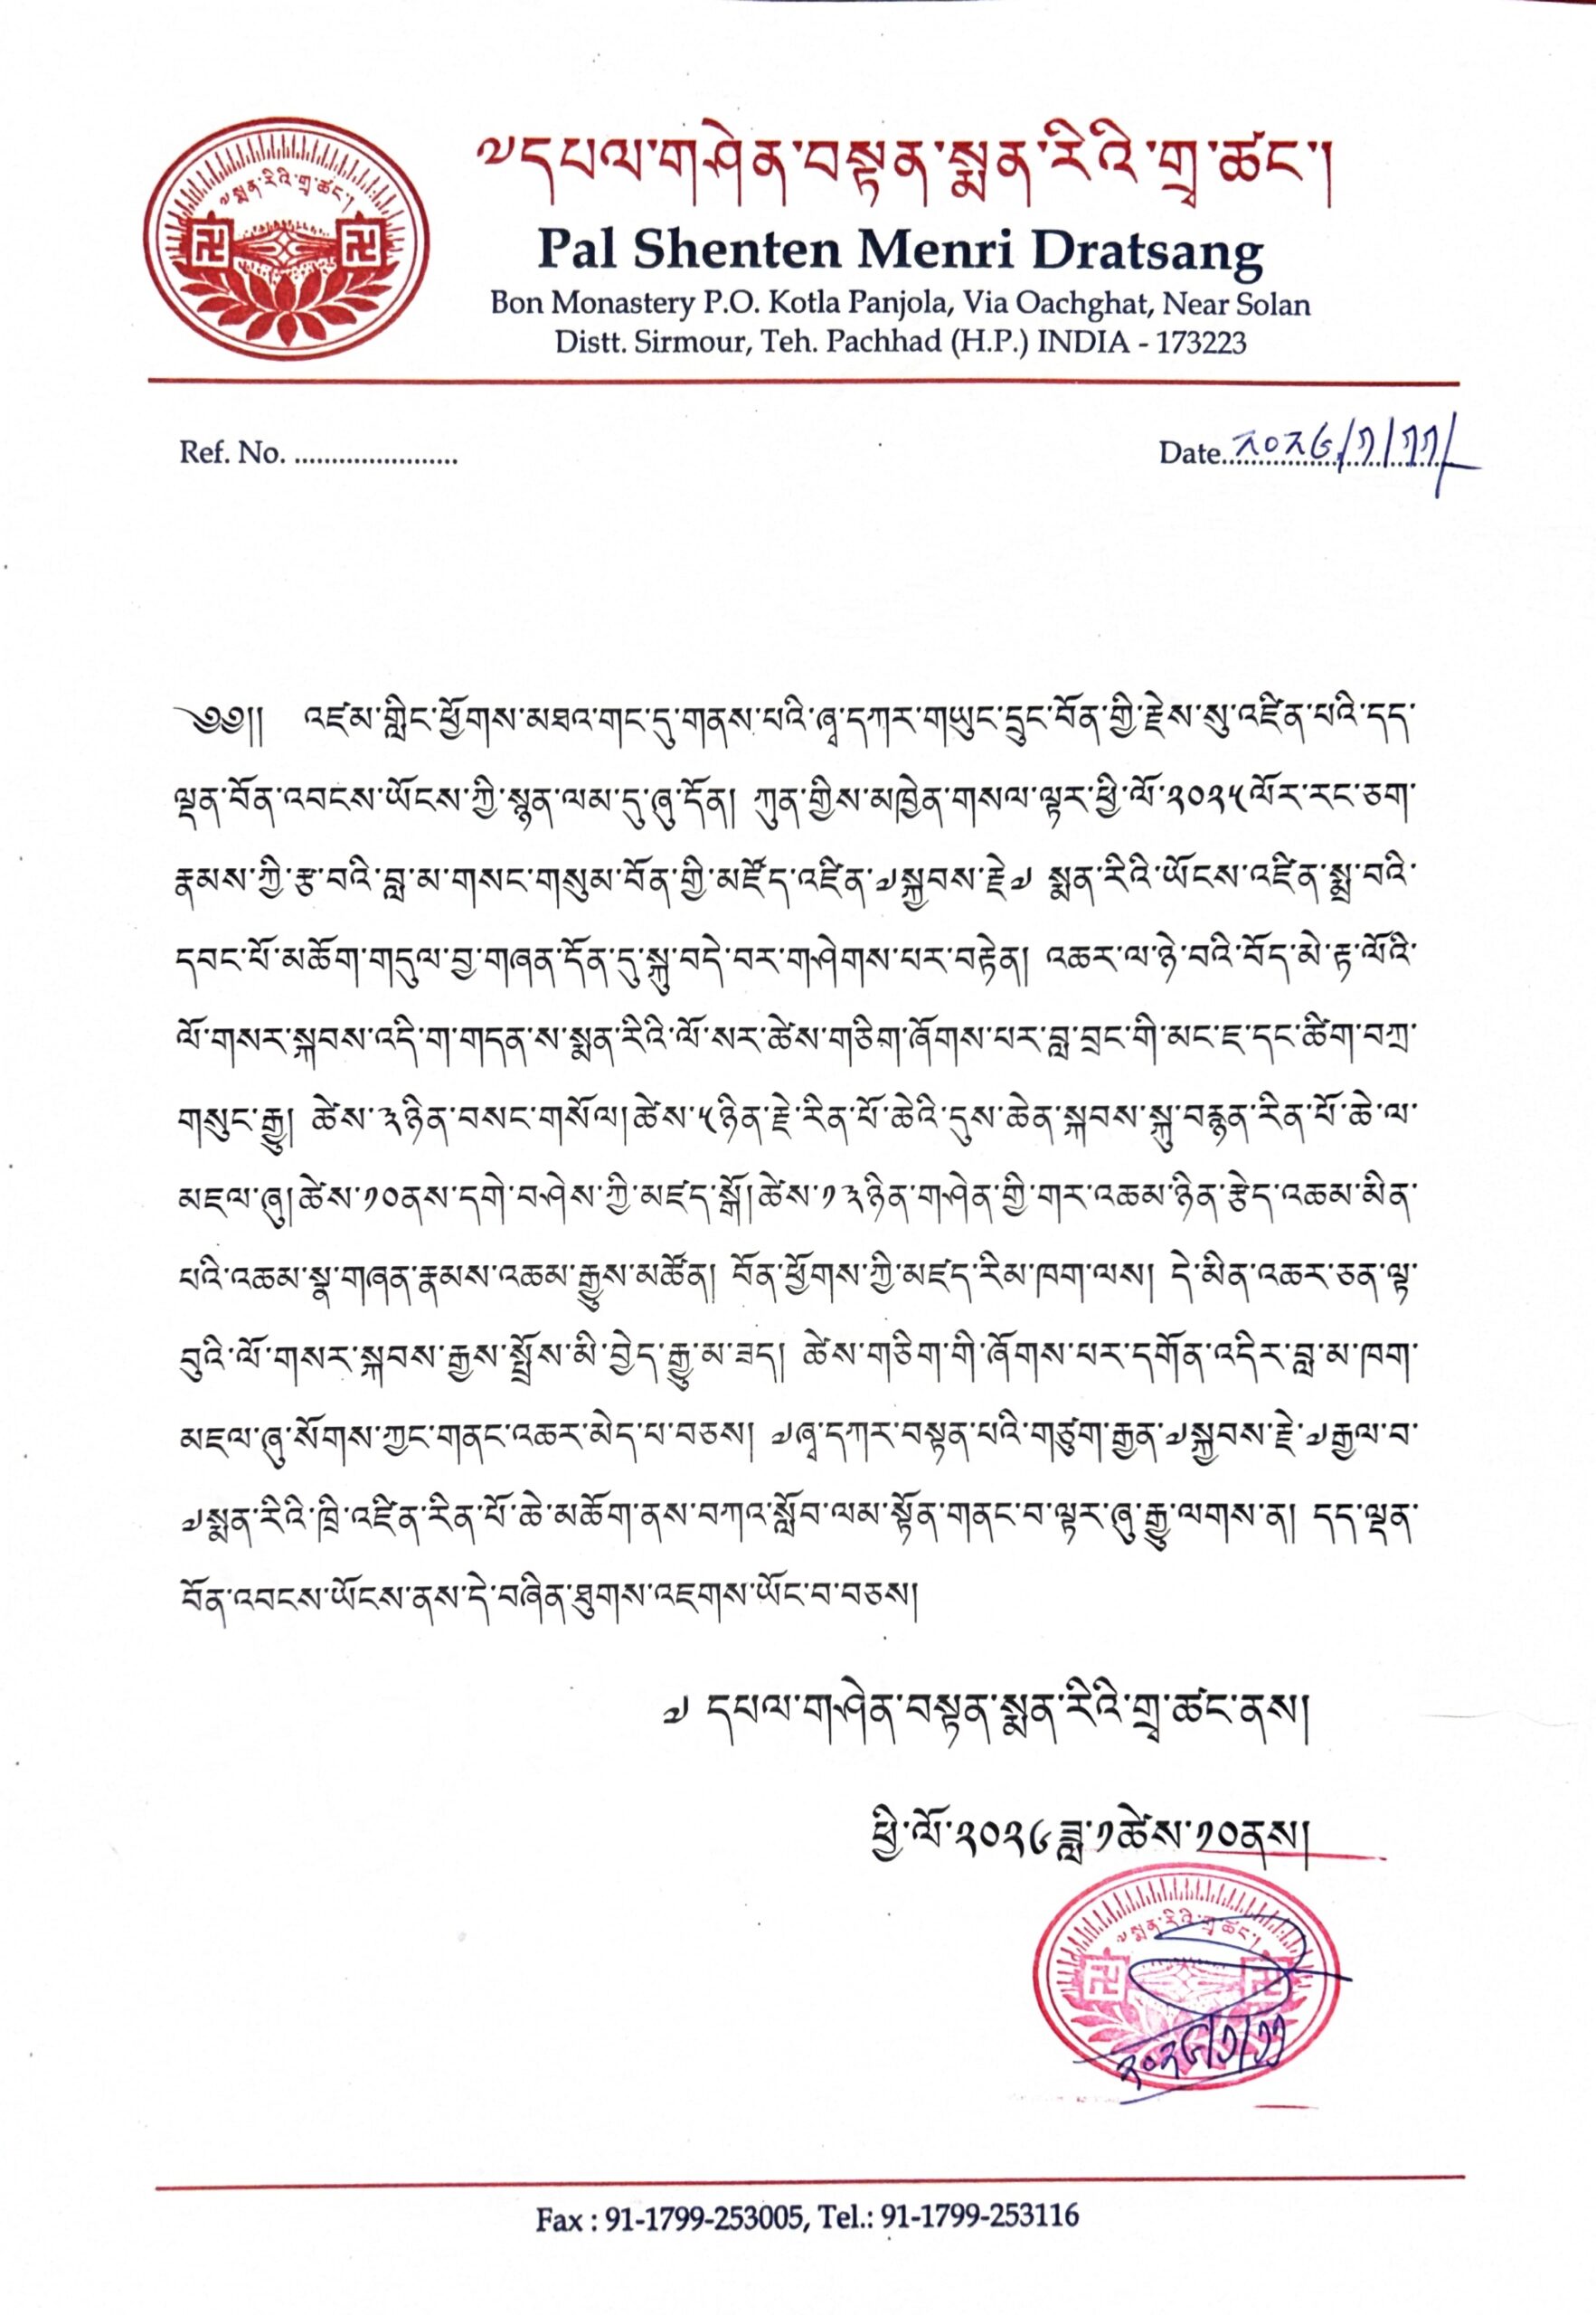 ༧སྨན་རིའི་གྲྭ་ཚང་།
༧དཔལ་གཤེན་བསྟན་སྨན་རིའི་གྲྭ་ཚང་།
Pal Shenten Menri Dratsang
Bon Monastery P.O. Kotla Panjola, Via Oachghat, Near Solan
Distt. Sirmour, Teh. Pachhad (H.P.) INDIA - 173223
Ref. No. ......................
Date. ༢༠༢༦/༡/༡༡/
༄༅།། འཛམ་གླིང་ཕྱོགས་མཐའ་གང་དུ་གནས་པའི་ཞྭ་དཀར་གཡུང་དྲུང་བོན་གྱི་རྗེས་སུ་འཛིན་པའི་དད་
ལྡན་བོན་འབངས་ཡོངས་ཀྱི་སྙན་ལམ་དུ་ཞུ་དོན། ཀུན་གྱིས་མཁྱེན་གསལ་ལྟར་ཕྱི་ལོ་༢༠༢༥ལོར་རང་ཅག་
རྣམས་ཀྱི་རྩ་བའི་བླ་མ་གསང་གསུམ་བོན་གྱི་མཛོད་འཛིན་༧སྐྱབས་རྗེ་༧ སྨན་རིའི་ཡོངས་འཛིན་སྨྲ་བའི་
དབང་པོ་མཆོག་གདུལ་བྱ་གཞན་དོན་དུ་སྐུ་བདེ་བར་གཤེགས་པར་བརྟེན། འཆར་ལ་ཉེ་བའི་བོད་མེ་རྟ་ལོའི་
ལོ་གསར་སྐབས་འདི་ག་གདན་ས་སྨན་རིའི་ལོ་སར་ཚེས་གཅིག་ཞོགས་པར་བླ་བྲང་གི་མང་ཇ་དང་ཚིག་བཀྲ་
གསུང་རྒྱུ། ཚེས་༣ཉིན་བསང་གསོལ།ཚེས་༥ཉིན་རྗེ་རིན་པོ་ཆེའི་དུས་ཆེན་སྐབས་སྐུ་བརྙན་རིན་པོ་ཆེ་ལ་
མཇལ་ཞུ།ཚེས་༡༠ནས་དགེ་བཤེས་ཀྱི་མཛད་སྒོ།ཚེས་༡༣ཉིན་གཤེན་གྱི་གར་འཆམ་ཉིན་རྩེད་འཆམ་མིན་
པའི་འཆམ་སྣ་གཞན་རྣམས་འཆམ་རྒྱུས་མཚོན། བོན་ཕྱོགས་ཀྱི་མཛད་རིམ་ཁག་ལས། དེ་མིན་འཆར་ཅན་ལྟ་
བུའི་ལོ་གསར་སྐབས་རྒྱས་སྤྲོས་མི་བྱེད་རྒྱུ་མ་ཟད། ཚེས་གཅིག་གི་ཞོགས་པར་དགོན་འདིར་བླ་མ་ཁག་
མཇལ་ཞུ་སོགས་ཀྱང་གནང་འཆར་མེད་པ་བཅས། ༧ཞྭ་དཀར་བསྟན་པའི་གཙུག་རྒྱན་༧སྐྱབས་རྗེ་༧རྒྱལ་བ་
༧སྨན་རིའི་ཁྲི་འཛིན་རིན་པོ་ཆེ་མཆོག་ནས་བཀའ་སློབ་ལམ་སྟོན་གནང་བ་ལྟར་ཞུ་རྒྱུ་ལགས་ན། དད་ལྡན་
བོན་འབངས་ཡོངས་ནས་དེ་བཞིན་ཐུགས་འཇགས་ཡོང་བ་བཅས།
༧ དཔལ་གཤེན་བསྟན་སྨན་རིའི་གྲྭ་ཚང་ནས།
ཕྱི་ལོ་༢༠༢༦ཟླ་༡ཚེས་༡༠ནས།
༧སྨན་རིའི་གྲྭ་ཚང་།
༢༠༢༦/༡/༡༡
Fax : 91-1799-253005, Tel.: 91-1799-253116